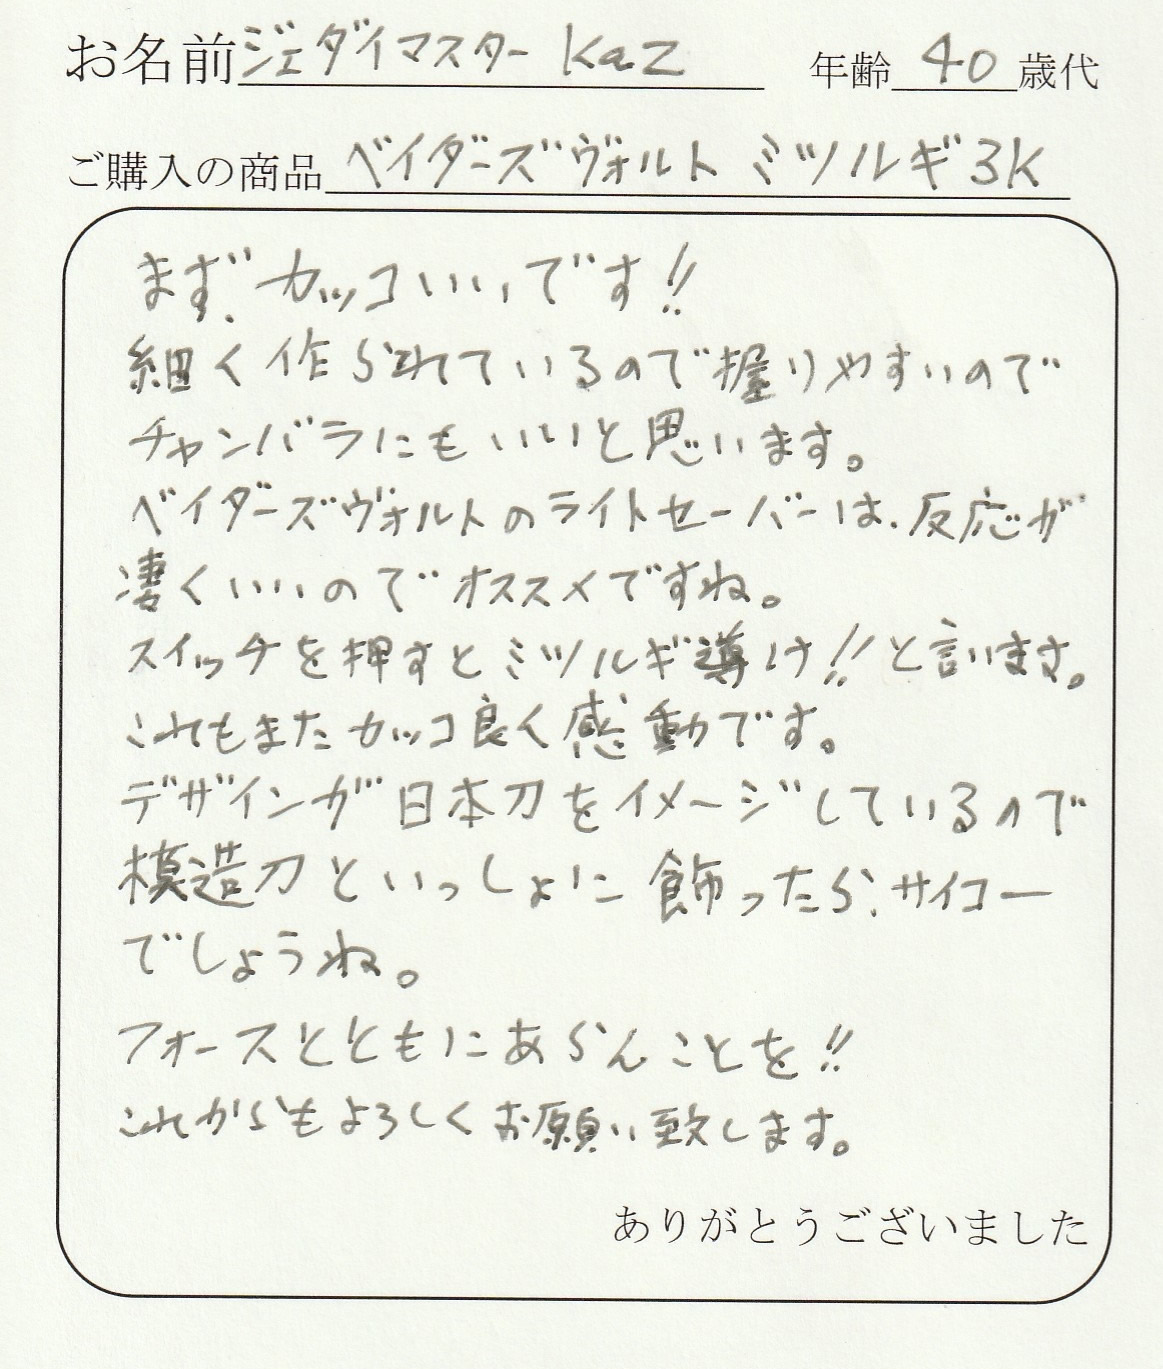 お名前 ジェダイマスター kaz 年齢 40 歳代
ご購入の商品 ベイダーズヴォルト ミツルギ3K
まず、カッコいいです!!
細く作られているので握りやすいので
チャンバラにもいいと思います。
ベイダーズヴォルトのライトセーバーは、反応が
凄くいいのでオススメですね。
スイッチを押すとミツルギ導け!!と言います。
これもまたカッコ良く感動です。
デザインが日本刀をイメージしているので
模造刀といっしょに飾ったら、サイコー
でしょうね。
フォースとともにあらんことを!!
これからもよろしくお願い致します。
ありがとうございました